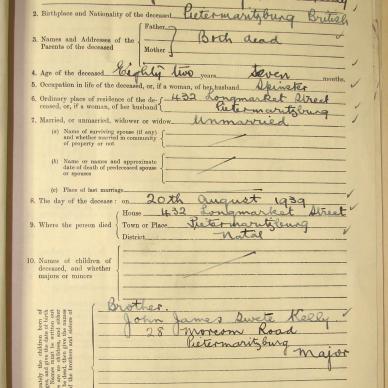 2. Birthplace and Nationality of the deceased Pietermaritzburg British
3. Names and Addresses of the Parents of the deceased
Father
Mother
Both dead
4. Age of the deceased Eighty two years seven months.
5. Occupation in life of the deceased, or, if a woman, of her husband Spinster
6. Ordinary place of residence of the deceased, or, if a woman, of her husband
432 Longmarket Street
Pietermaritzburg
7. Married, or unmarried, widower or widow Unmarried
(a) Name of surviving spouse (if any) and whether married in community of property or not
(b) Name or names and approximate date of death of predeceased spouse or spouses
(c) Place of last marriage
8. The day of the decease: on 20th August 1939
9. Where the person died
House 432 Longmarket Street
Town or Place Pietermaritzburg
District Natal
10. Names of children of deceased, and whether majors or minors
Brother.
John James Swete Kelly.
28 Morcom Road
Pietermaritzburg
Major